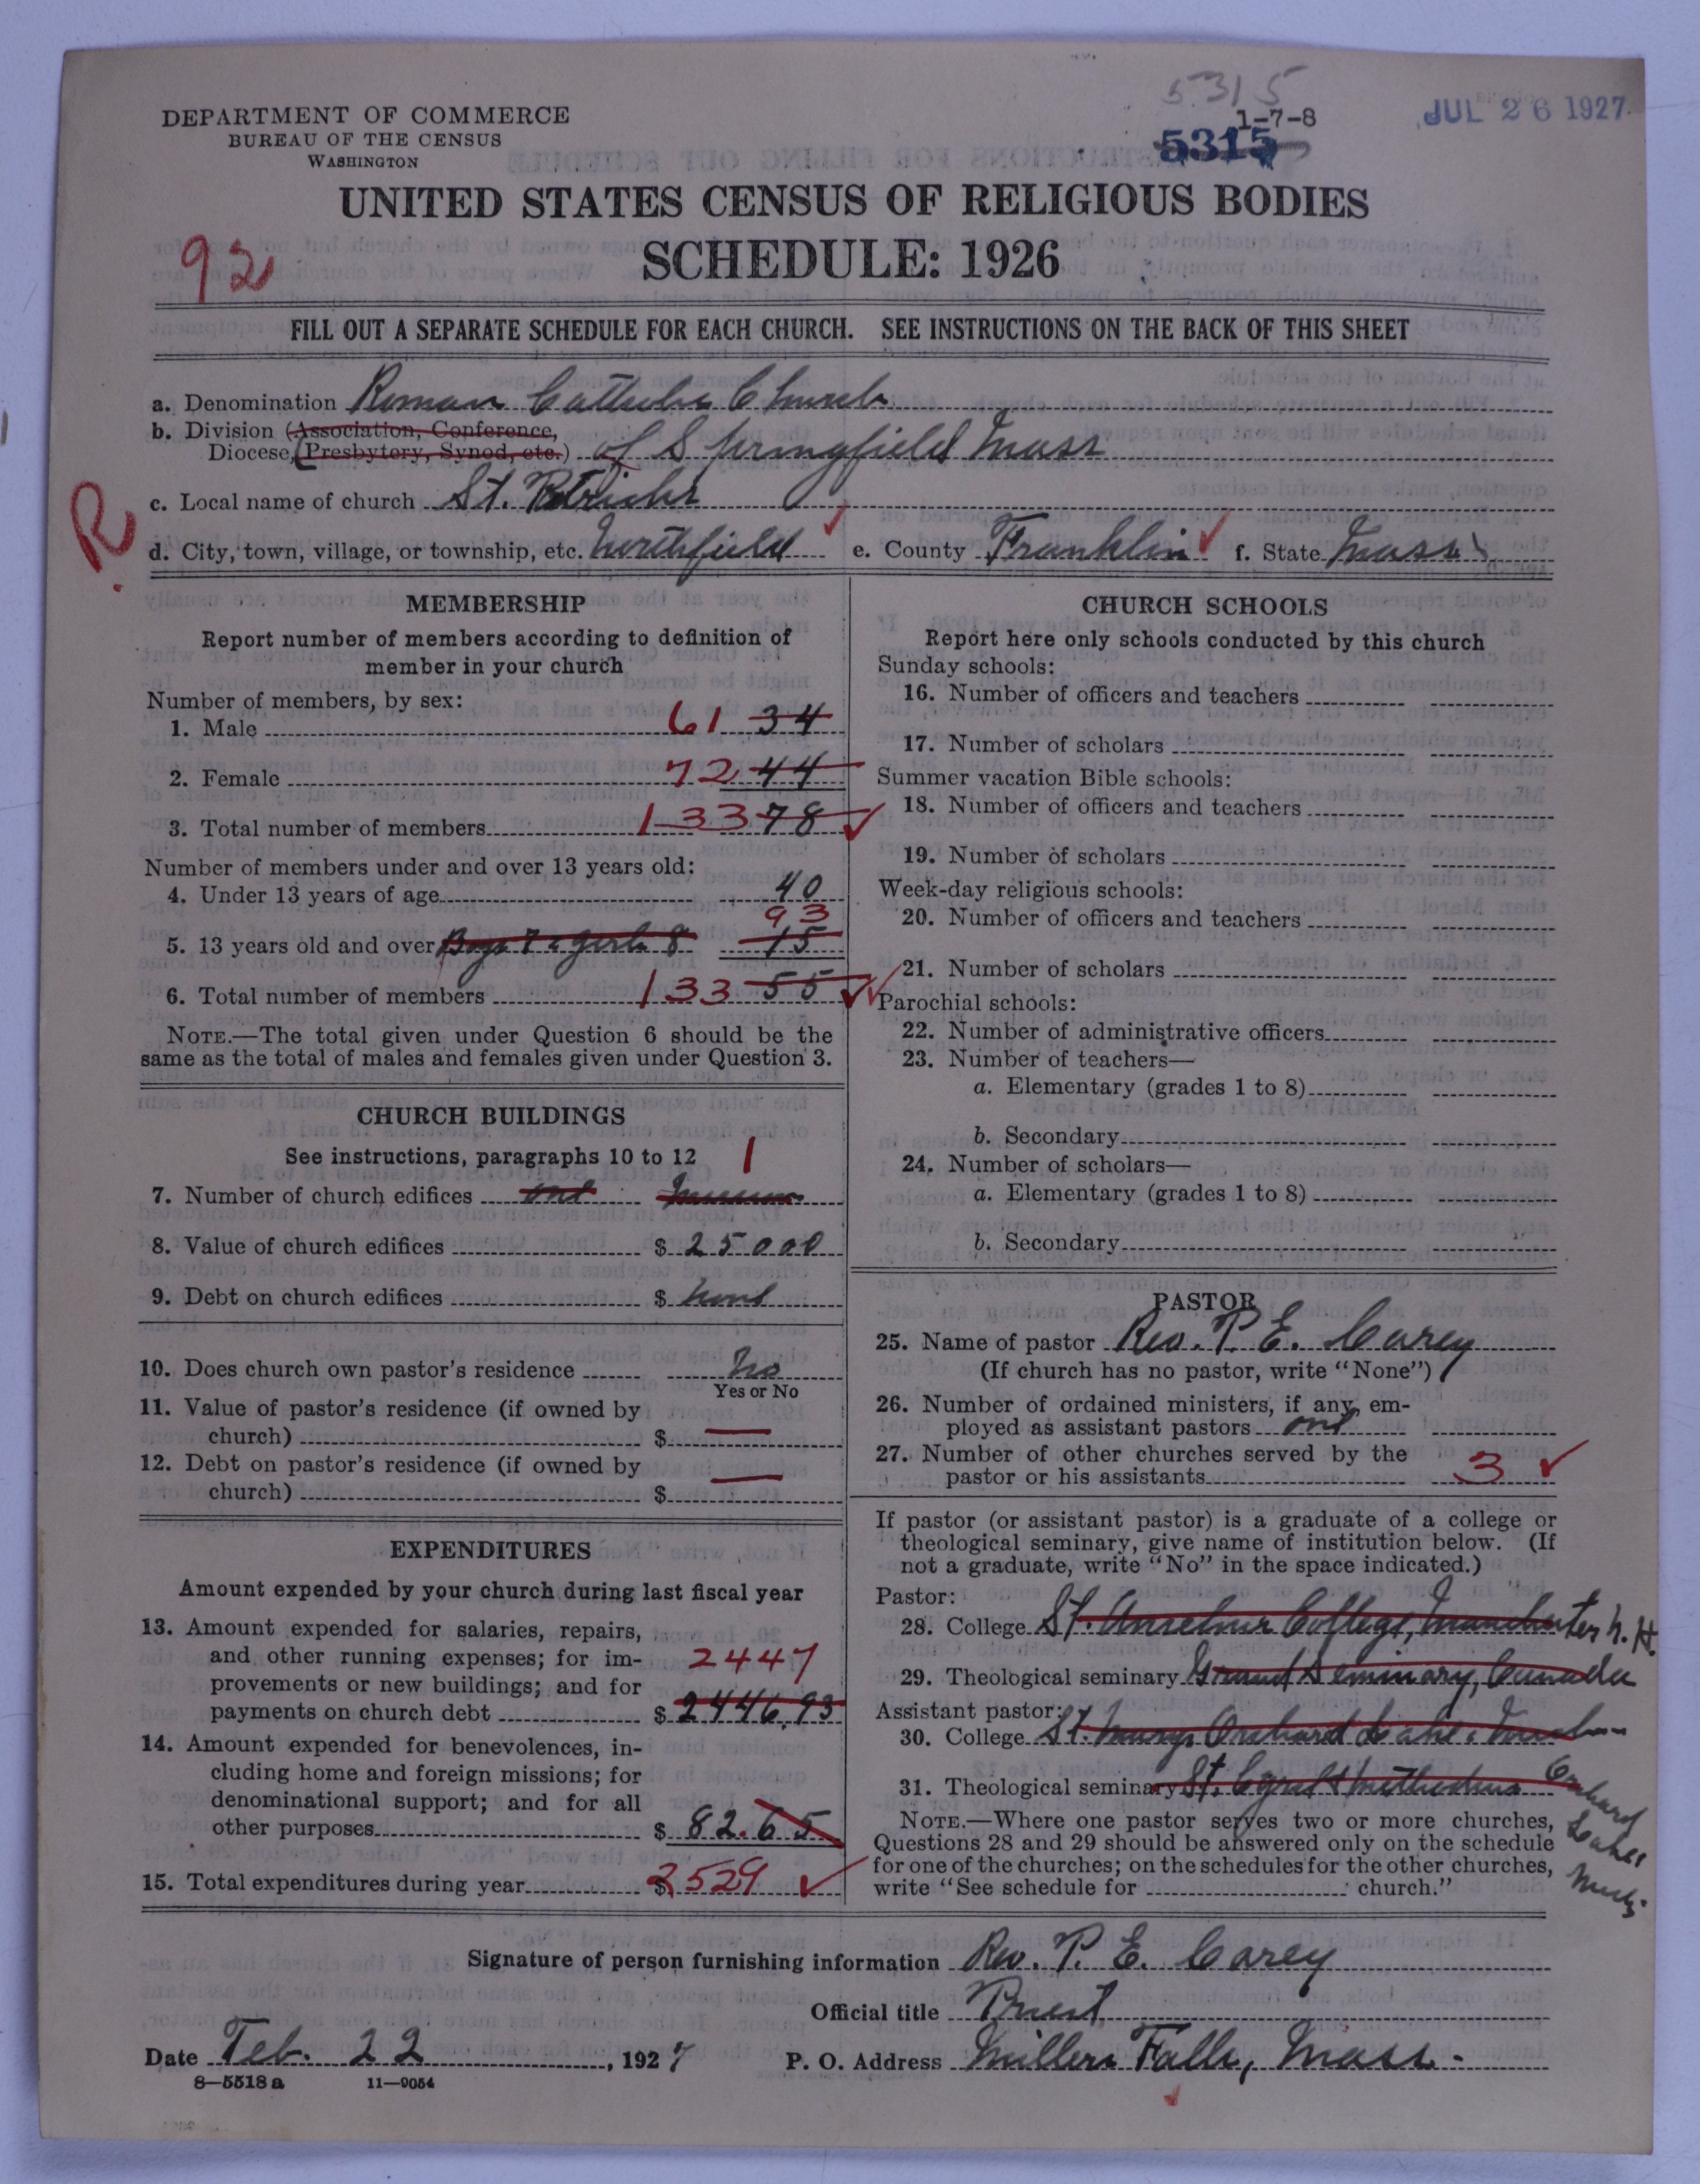 5315
1-7-8
5315
JUL 26 1927
DEPARTMENT OF COMMERCE
BUREAU OF THE CENSUS
WASHINGTON
UNITED STATES CENSUS OF RELIGIOUS BODIES
SCHEDULE: 1926
92
FILL OUT A SEPARATE SCHEDULE FOR EACH CHURCH. SEE INSTRUCTIONS ON THE BACK OF THIS SHEET
a. Denomination Roman Catholic Church
b. Division (Association, Conference,
Diocese, (Presbytery, Synod, etc.) of Springfield Mass
c. Local name of church St. Patricks
R
d. City, town, village, or township, etc. Northfield e. County Franklin f. State Mass
MEMBERSHIP
Report number of members according to definition of
member in your church
Number of members, by sex:
1. Male 61 34
2. Female 72 44
3. Total number of members 133 78
Number of members under and over 13 years old:
4. Under 13 years of age 40
93
5. 13 years old and over Boys 7 & Girls 8 15
6. Total number of members 133 55
NOTE.—The total given under Question 6 should be the
same as the total of males and females given under Question 3.
CHURCH BUILDINGS
See instructions, paragraphs 10 to 12 1
7. Number of church edifices one
8. Value of church edifices $ 25000
9. Debt on church edifices $ none
10. Does church own pastor's residence No
Yes or No
11. Value of pastor's residence (if owned by
church) $ —
12. Debt on pastor's residence (if owned by
church) $ —
EXPENDITURES
Amount expended by your church during last fiscal year
13. Amount expended for salaries, repairs,
and other running expenses; for im-
2447
provements or new buildings; and for
payments on church debt $ 2446.93
14. Amount expended for benevolences, in-
cluding home and foreign missions; for
denominational support; and for all
other purposes $ 82.65
15. Total expenditures during year $ 2529
CHURCH SCHOOLS
Report here only schools conducted by this church
Sunday schools:
16. Number of officers and teachers
17. Number of scholars
Summer vacation Bible schools:
18. Number of officers and teachers
19. Number of scholars
Week-day religious schools:
20. Number of officers and teachers
21. Number of scholars
Parochial schools:
22. Number of administrative officers
23. Number of teachers—
a. Elementary (grades 1 to 8)
b. Secondary
24. Number of scholars—
a. Elementary (grades 1 to 8)
b. Secondary
PASTOR
25. Name of pastor Rev. P. E. Carey
(If church has no pastor, write "None")
26. Number of ordained ministers, if any, em-
ployed as assistant pastors one
27. Number of other churches served by the
pastor or his assistants 3
If pastor (or assistant pastor) is a graduate of a college or
theological seminary, give name of institution below. (If
not a graduate, write "No" in the space indicated.)
Pastor:
28. College St. Anselms College, Manchester N. H.
29. Theological seminary Grand Seminary, Canada
Assistant pastor:
30. College St. Marys Orchard Lake,
31. Theological seminary St. Cyril & Methodius Orchard
Lake
Mich.
NOTE.—Where one pastor serves two or more churches,
Questions 28 and 29 should be answered only on the schedule
for one of the churches; on the schedules for the other churches,
write "See schedule for church."
Signature of person furnishing information Rev. P. E. Carey
Official title Priest
Date Feb. 22, 1927 P. O. Address Millers Falls, Mass.
8—5518 a 11—9054